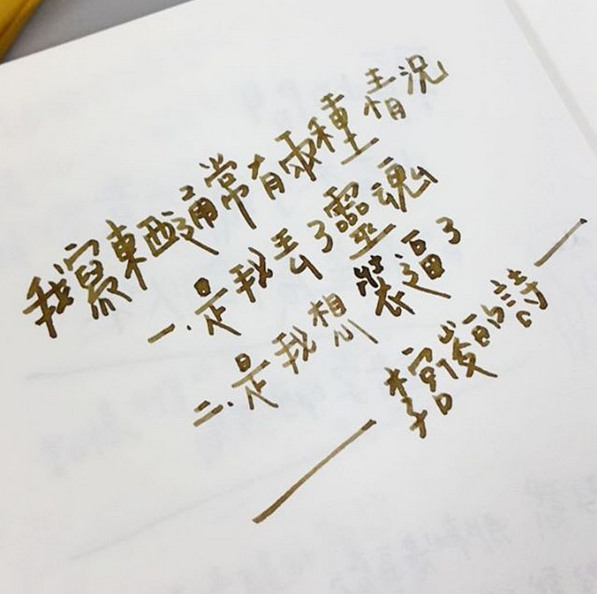 我寫東西通常有兩種情況
一.是我丟了靈魂
二.是我想裝逼了
的詩